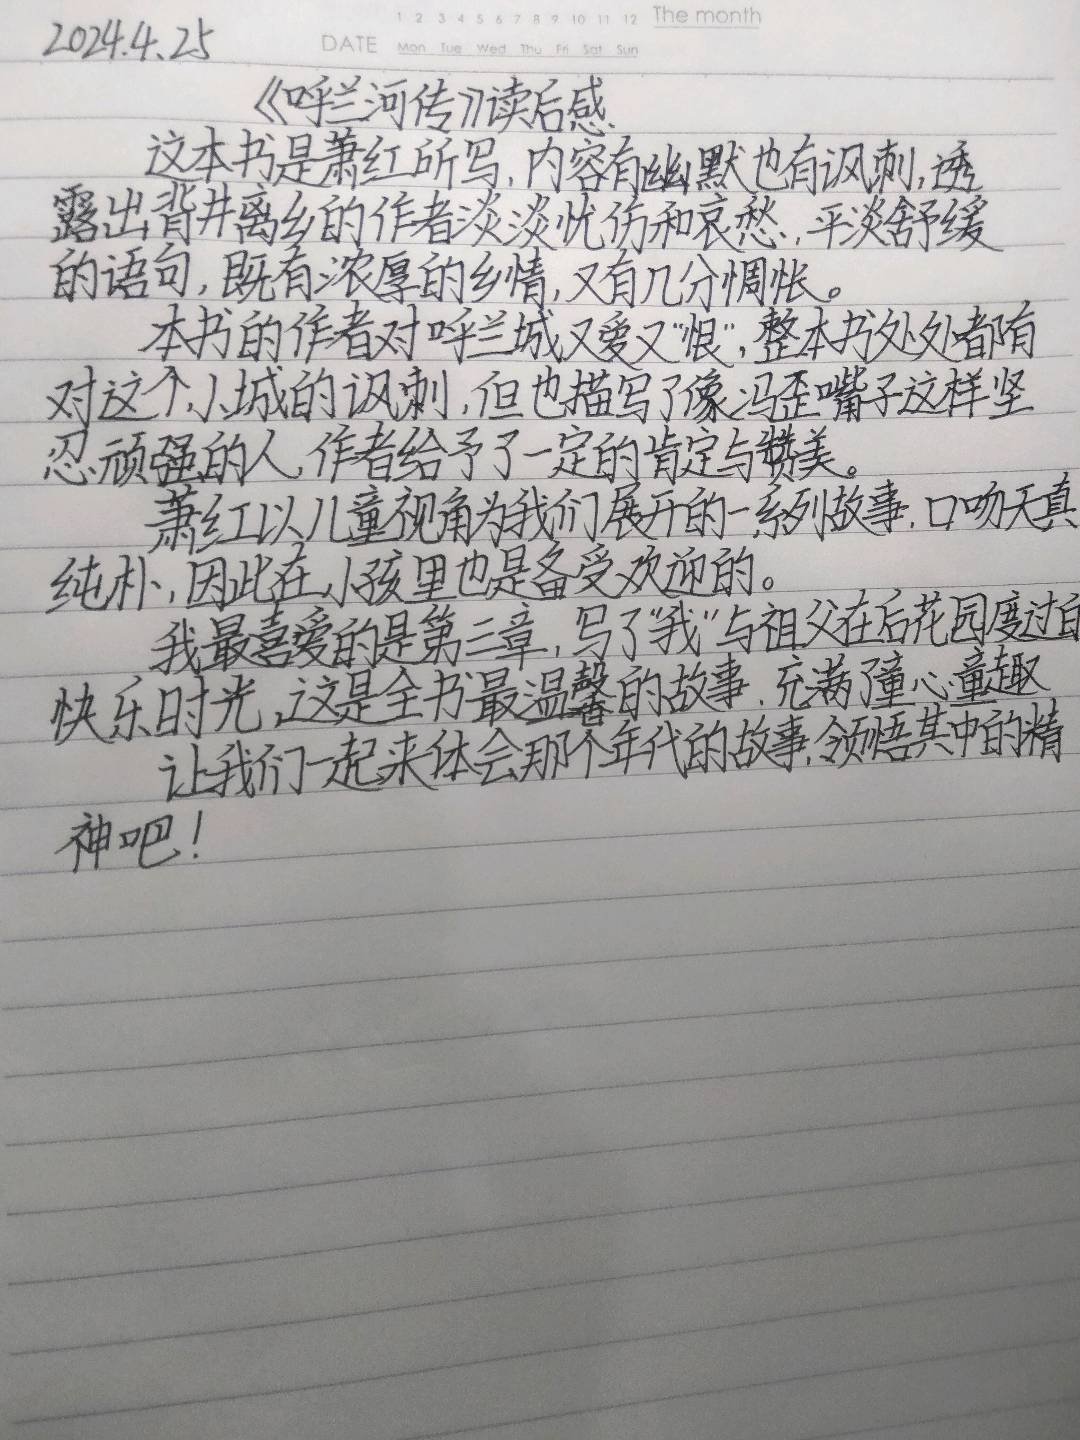 1 2 3 4 5 6 7 8 9 10 11 12 The month
DATE Mon Tue Wed Thu Fri Sat Sun
2024.4.25
《呼兰河传》读后感
这本书是萧红所写,内容有幽默也有讽刺,透
露出背井离乡的作者淡淡忧伤和哀愁,平淡舒缓
的语句,既有浓厚的乡情,又有几分惆怅。
本书的作者对呼兰城又爱又"恨",整本书处处都有
对这个小城的讽刺,但也描写了像冯歪嘴子这样坚
忍顽强的人,作者给予了一定的肯定与赞美。
萧红以儿童视角为我们展开的一系列故事,口吻天真
纯朴,因此在小孩里也是备受欢迎的。
我最喜爱的是第三章,写了"我"与祖父在后花园度过的
快乐时光,这是全书最温馨的故事,充满了童心童趣
让我们一起来体会那个年代的故事,领悟其中的精
神吧!